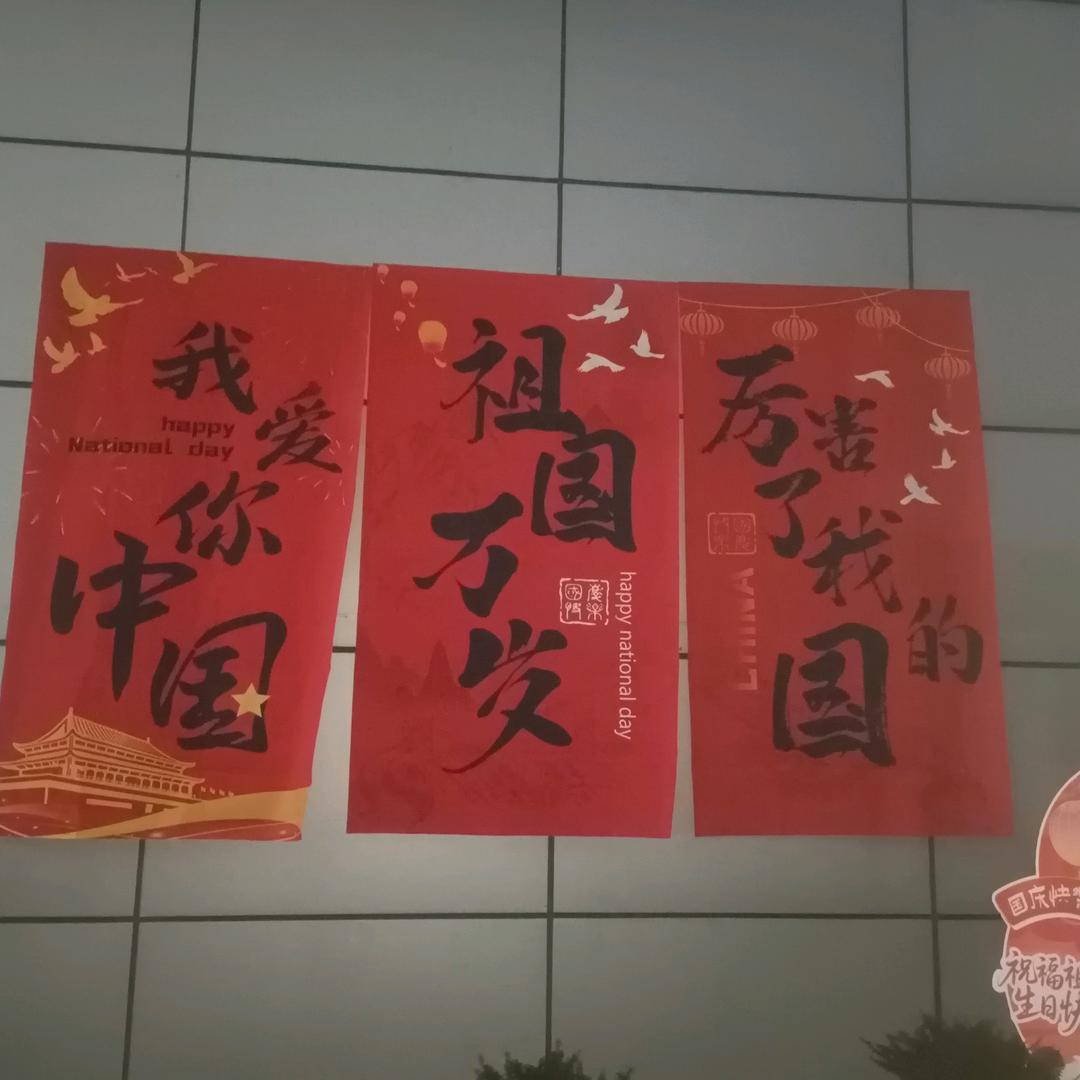 我爱你中国
happy
National day
祖国万岁
happy national day
厉害了我的国
CHINA
国庆快
祝福祖
生日快